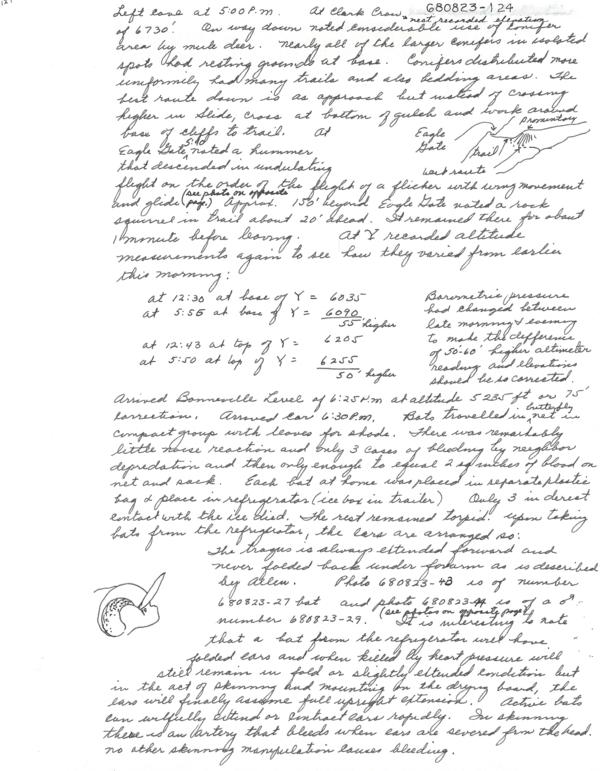 680823-124
Left cave at 5:00 P.m. At Clark Crow nest recorded elevation
of 6730'. On way down noted considerable use of conifer
area by mule deer. Nearly all of the larger conifers in isolated
spots had resting grounds at base. Conifers distributed more
uniformily had many trails and also bedding areas. The
best route down is as approach but instead of crossing
higher in slide, cross at bottom of gulch and work around
base of cliffs to trail. At
Eagle Gate 5:40 noted a hummer
that descended in undulating
Eagle
Gate
Promontory
trail
best route
flight on the order of the flight of a flicker with wing movement
and glide (see photo on opposite page.) Approx. 150' beyond Eagle Gate noted a rock
squirrel in trail about 20' ahead. It remained there for about
1 monute before leaving. At Y recorded altitude
measurements again to see how they varied from earlier
this morning:
at 12:30 at base of Y = 6035
at 5:55 at base of Y = 6090
55' higher
at 12:43 at top of Y = 6205
at 5:50 at top of Y = 6255
50' higher
Barometric pressure
had changed between
late morning & evening
to make the difference
of 50'-60' higher altimeter
reading and elevations
should be so corrected.
Arrived Bonneville Level at 6:25 P.m at altitude 5235 ft or 75'
correction. Arrived car 6:30 P.m. Bats travelled in butterfly net in
compact group with leaves for shade. There was remarkably
little noise reaction and only 3 cases of bleeding by neighbor
depredation and then only enough to equal 2 sq inches of blood on
net and sack. Each bat at home was placed in separate plastic
bag & place in refrigerator (ice box in trailer) Only 3 in direct
contact with the ice died. The rest remained torpid. upon taking
bats from the refrigerator, the ears are arranged so:
The tragus is always extended forward and
never folded back under forearm as is described
by Allen. Photo 680823-43 is of number
680823-27 bat and photo 680823- is of a ♂
number 680823-29. (see photos on opposite page) It is interesting to note
that a bat from the refrigerator will have
folded ears and when killed by heart pressure will
still remain in fold or slightly extended condition but
in the act of skinning and mounting on the drying board, the
ears will finally assume full upright extension. Active bats
can wilfully extend or contract ears rapidly. In skinning
there is an artery that bleeds when ears are severed from the head.
no other skinning manipulation causes bleeding.